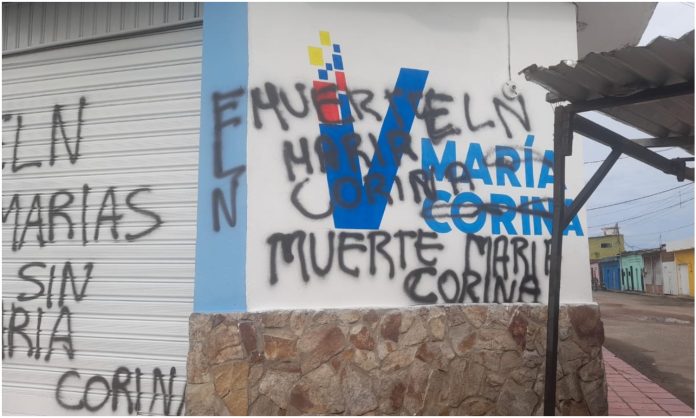 ELN
MARIAS
SIN
RIA
CORINA
ELN
MUERTE ELN
MARIA
CORINA
V
MARÍA
CORINA
MUERTE MARIA
CORINA